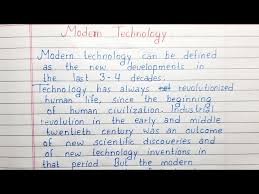 Modern Technology
Modern technology can be defined
as the new developments in
the last 3-4 decades.
Technology has always revolutionized
human life, since the beginning
of human civilization. Industrial
revolution in the early and middle
twentieth century was an outcome
of new scientific discoveries and
of new technology inventions in
that period. But the modern